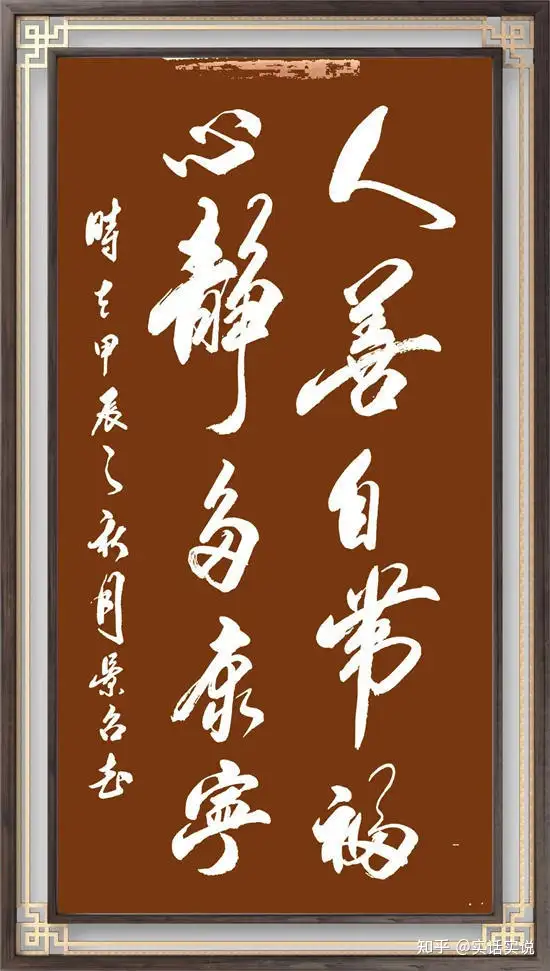 人善自带福
心静多康寧
時在甲辰之秋月
知乎 @实话实说